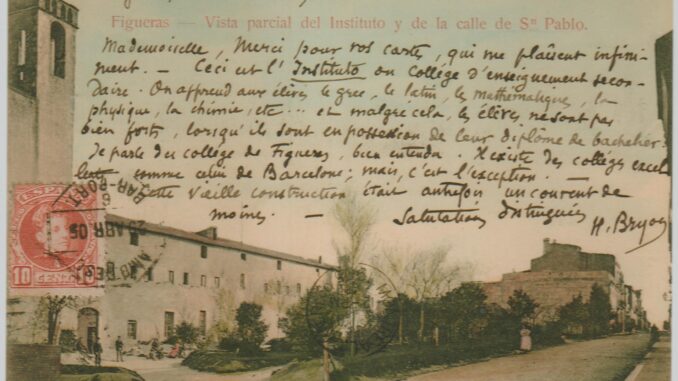 Figueras — Vista parcial del Instituto y de la calle de Sn Pablo.
Mademoiselle, Merci pour vos cartes, qui me plaisent infini-
ment. — Ceci est l'Instituto ou Collège d'enseignement secon-
daire. On apprend aux élèves le grec, le latin, les mathématiques, la
physique, la chimie, etc... et malgré cela, les élèves ne sont pas
bien forts, lorsqu'ils sont en possession de leur diplôme de bachelier.
Je parle du collège de Figueres, bien entendu. Il existe des collèges excel-
lents comme celui de Barcelone; mais, c'est l'exception. —
Cette vieille construction était autrefois un couvent de
moines. — Salutations distinguées
H. Bryon
ESPAÑA
10 CENT.
25 ABR 05